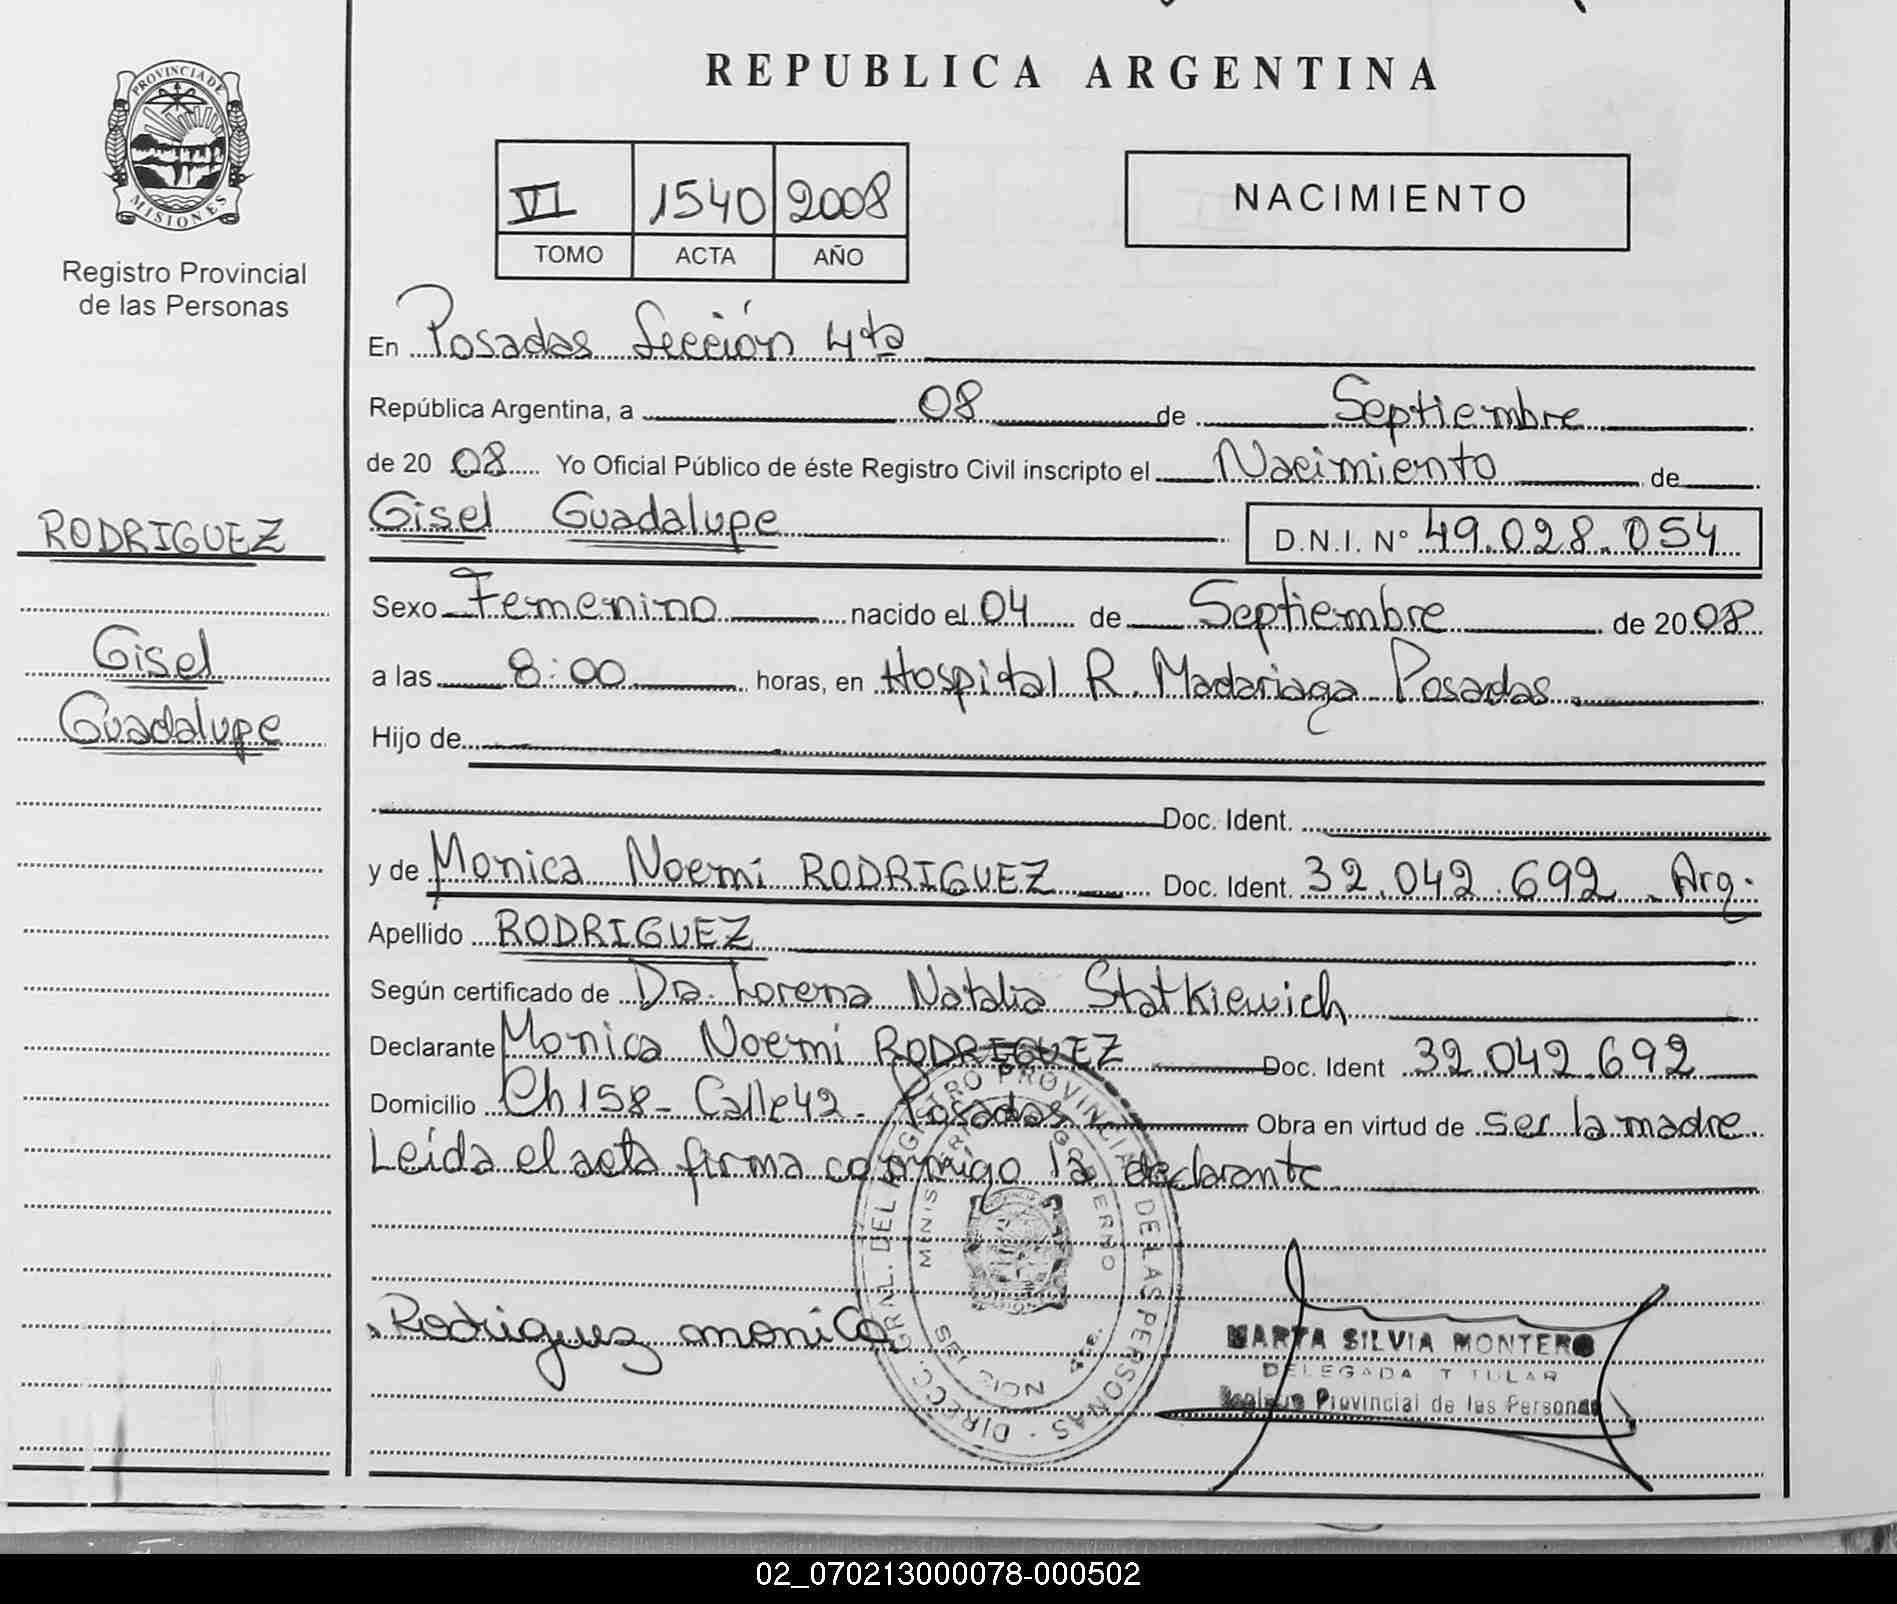 REPUBLICA ARGENTINA
PROVINCIA DE
MISIONES
Registro Provincial
de las Personas
VI 1540 2008
TOMO ACTA AÑO
NACIMIENTO
En Posadas Sección 4ta
República Argentina, a 08 de Septiembre
de 20 08 Yo Oficial Público de éste Registro Civil inscripto el Nacimiento de
RODRIGUEZ
Gisel
Guadalupe
Gisel Guadalupe D.N.I. N° 49.028.054
Sexo Femenino nacido el 04 de Septiembre de 20 08
a las 8:00 horas, en Hospital R. Madariaga Posadas.
Hijo de
Doc. Ident.
y de Monica Noemi RODRIGUEZ Doc. Ident. 32.042.692. Arg.
Apellido RODRIGUEZ
Según certificado de Dra. Lorena Natalia Statkiewich
Declarante Monica Noemi RODRIGUEZ Doc. Ident 32.042.692
Domicilio Ch 158 - Calle 42 - Posadas Obra en virtud de ser la madre.
Leída el acta firma conmigo la declarante
DIRECC. GRAL. DEL REGISTRO PROVINCIAL DE LAS PERSONAS
GOBIERNO
Rodriguez monica
MARTA SILVIA MONTERO
DELEGADA TITULAR
Registro Provincial de las Personas
02_070213000078-000502